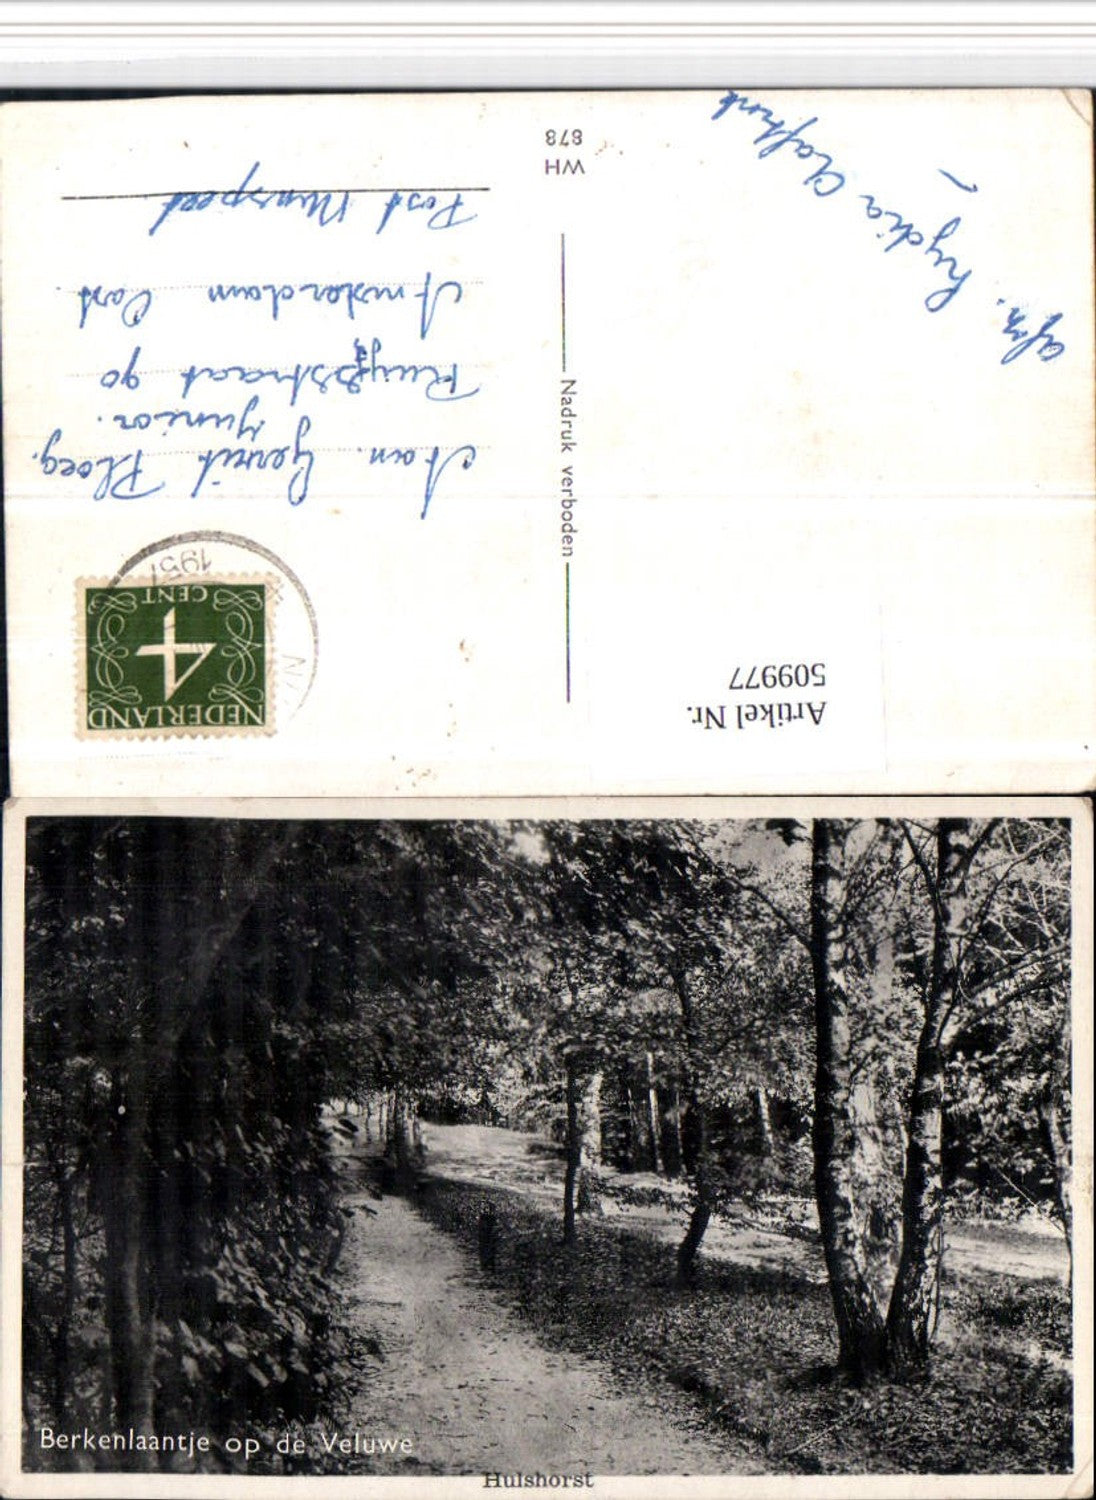 WH
878
Nadruk verboden
Artikel Nr.
509977
NEDERLAND
4
CENT
1957
Aan. Gerrit Ploeg.
Junior.
Ruijsstraat 90
Amsterdam Oost.
Post
afz. Lydia
Berkenlaantje op de Veluwe
Hulshorst